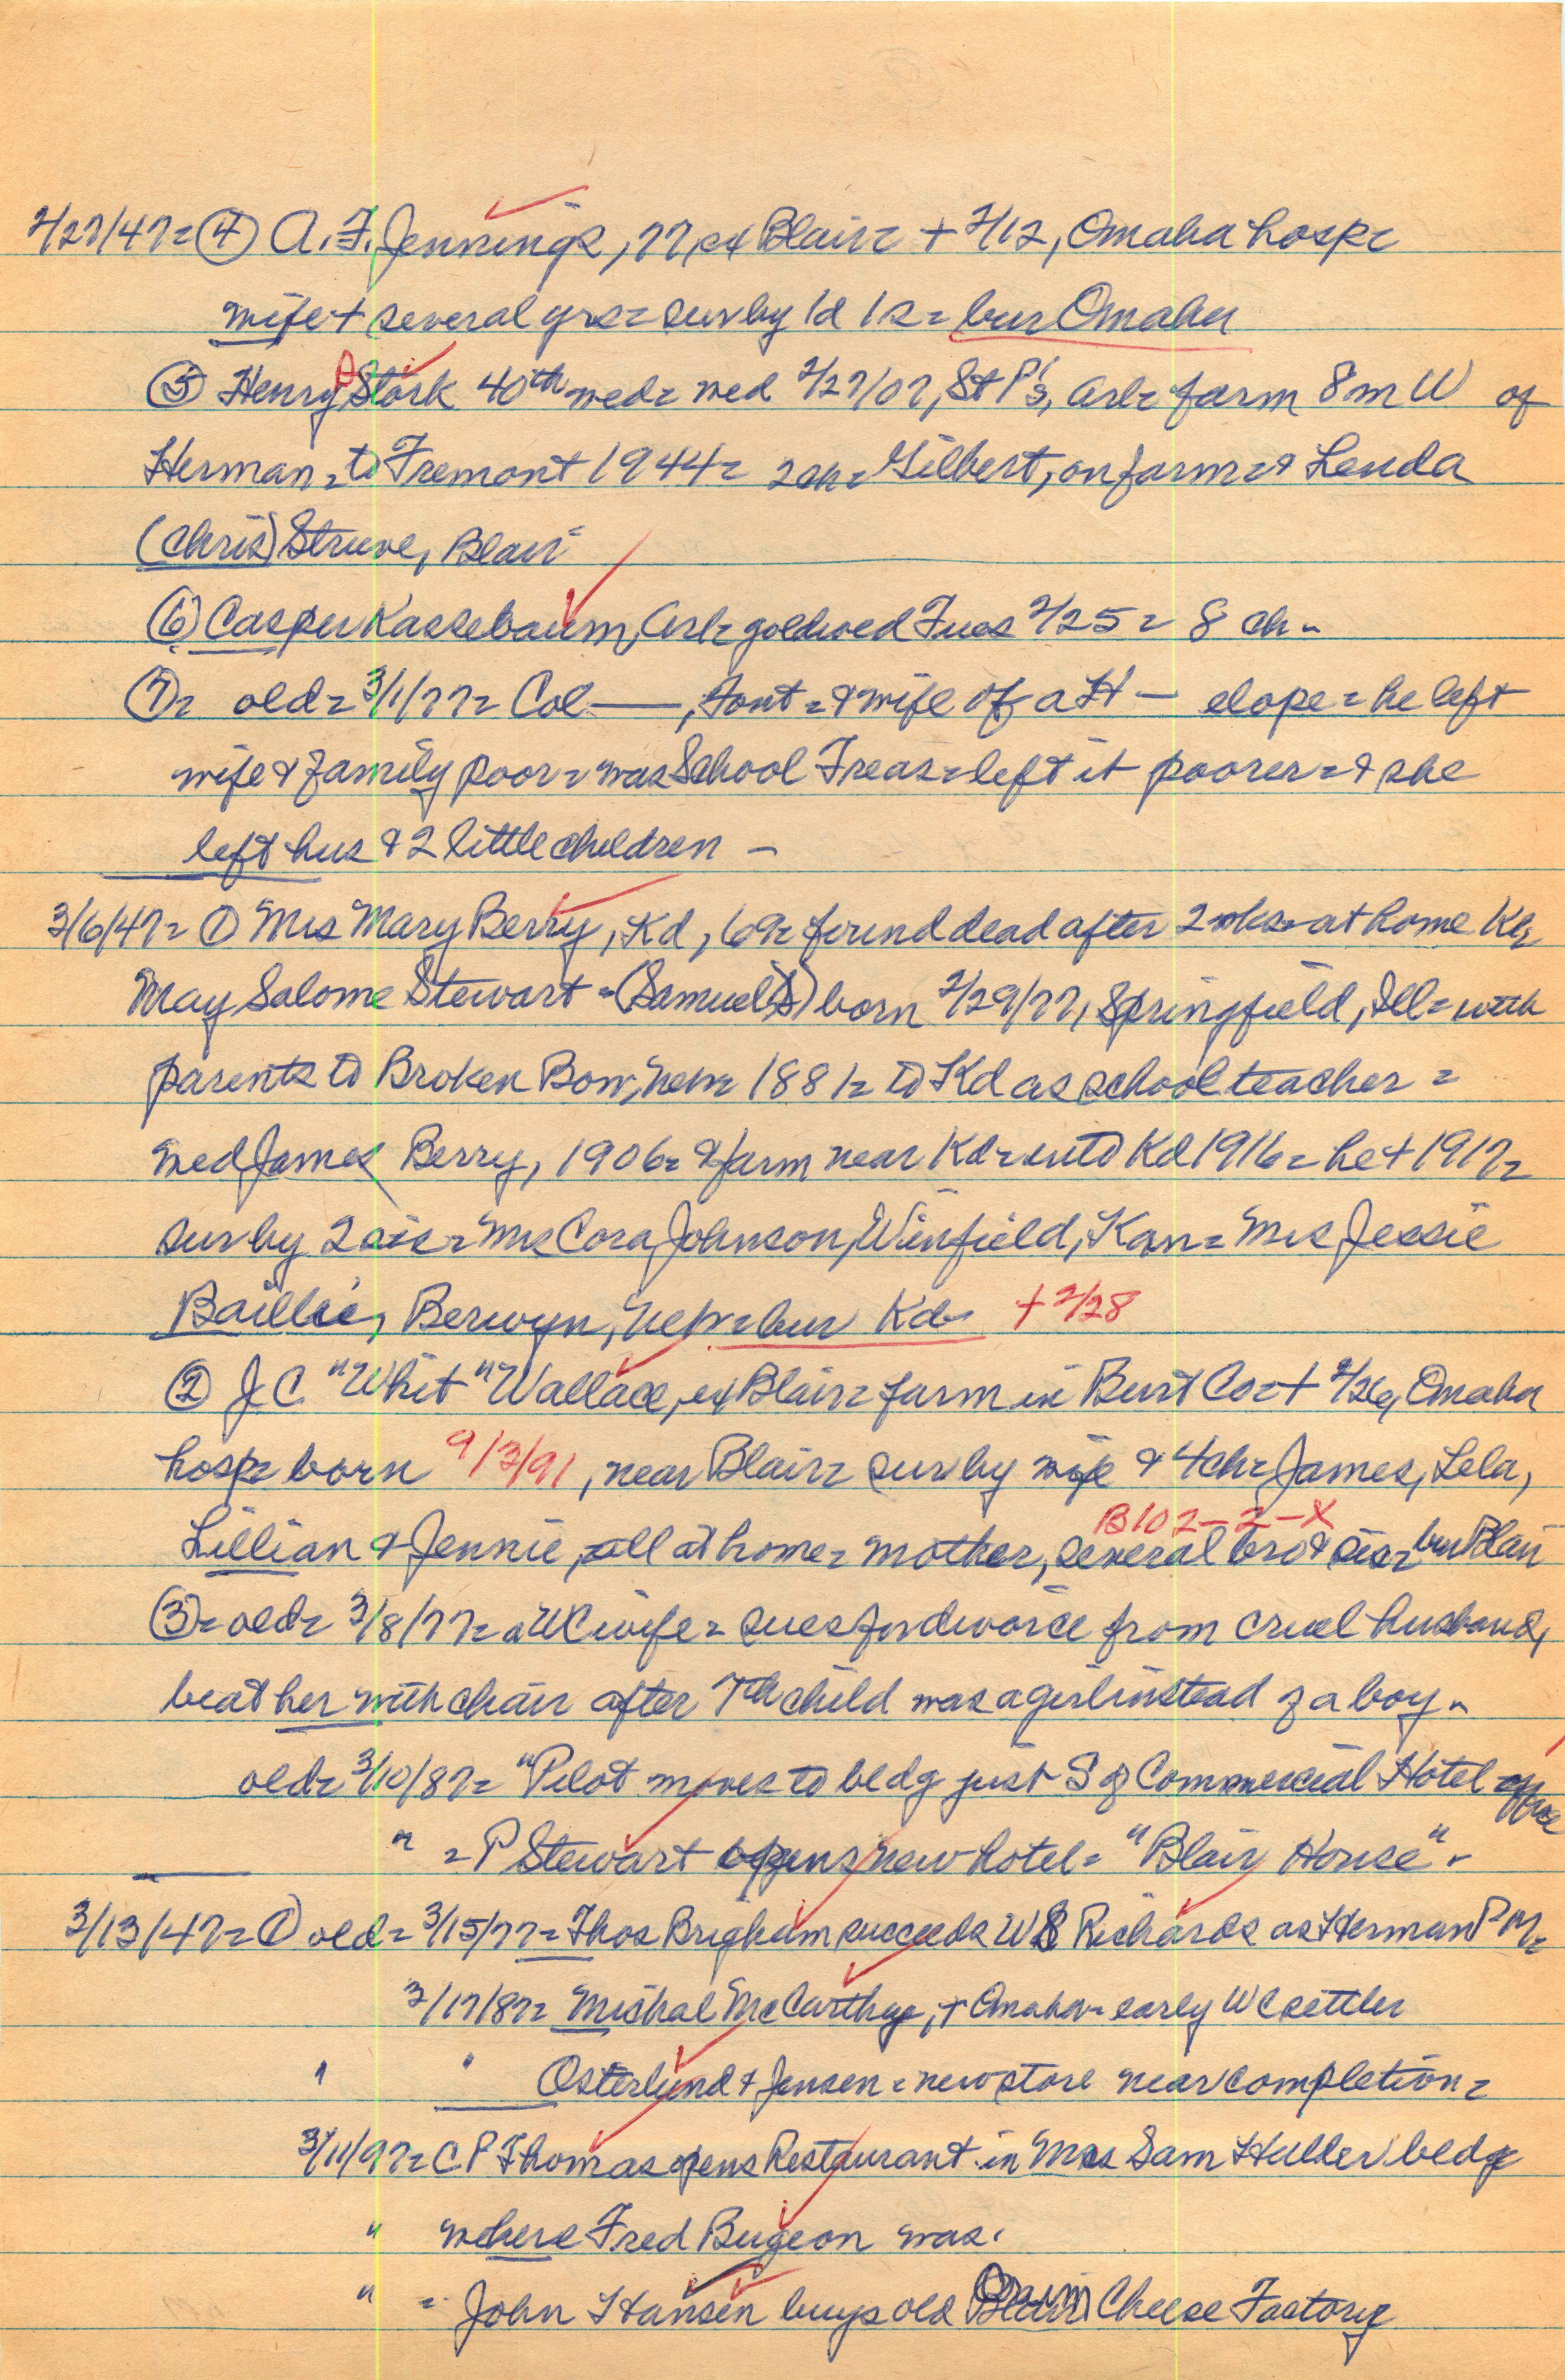 2/27/47= ④ A.F. Jennings, 77, ex Blair= + 2/12, Omaha hosp=
wife + several yrs= sur by 1d 1s= bur Omaha
⑤ Henry P Stork 40th wed= wed 2/27/07, St P's, Arl= farm 8 m W of
Herman= to Fremont 1944= 2 ch= Gilbert, on farm= & Lenda
(Chris) Struve, Blair=
⑥ Casper Kassebaum, Arl= gold wed Tues 2/25= 8 ch-
⑦= old= 3/1/77= Col —, Font= & wife of a H — elope= he left
wife & family poor= was School Treas= left it poorer= & she
left hus & 2 little children -
3/6/47= ① Mrs Mary Berry, Kd, 69= found dead after 2 wks= at home Kd=
May Salome Stewart= (Samuel S) born 2/29/77, Springfield, Ill= with
parents to Broken Bow, Neb= 1881= to Kd as school teacher=
wed James Berry, 1906= & farm near Kd= into Kd 1916= he + 1917=
sur by 2 sis= Mrs Cora Johnson, Winfield, Kan= Mrs Jessie
Baillie, Berwyn, Neb= bur Kd= + 2/28
② J C "Whit" Wallace, ex Blair= farm in Burt Co= + 2/26, Omaha
hosp= born 9/3/91, near Blair= sur by wife & 4 ch= James, Lela,
B102-2-X
Lillian & Jennie, all at home= mother, several bro & sis= bur Blair
③= old= 3/8/77= a WC wife= sues for divorce from cruel husband,
beat her with chair after 7th child was a girl instead of a boy-
old= 3/10/87= "Pilot moves to bldg just S of Commercial Hotel office
" = P Stewart opens new hotel= "Blair House"-
3/13/47= ① old= 3/15/77= Thos Brigham succeeds W S Richards as Herman P M=
3/17/87= Mishal McCarthy, + Omaha= early WC settler
" " Osterlund & Jensen= new store near completion=
3/11/97= C P Thomas opens Restaurant in Mrs Sam Huller bldg
" where Fred Bugeon was.
" = John Hansen buys old Orum Cheese Factory